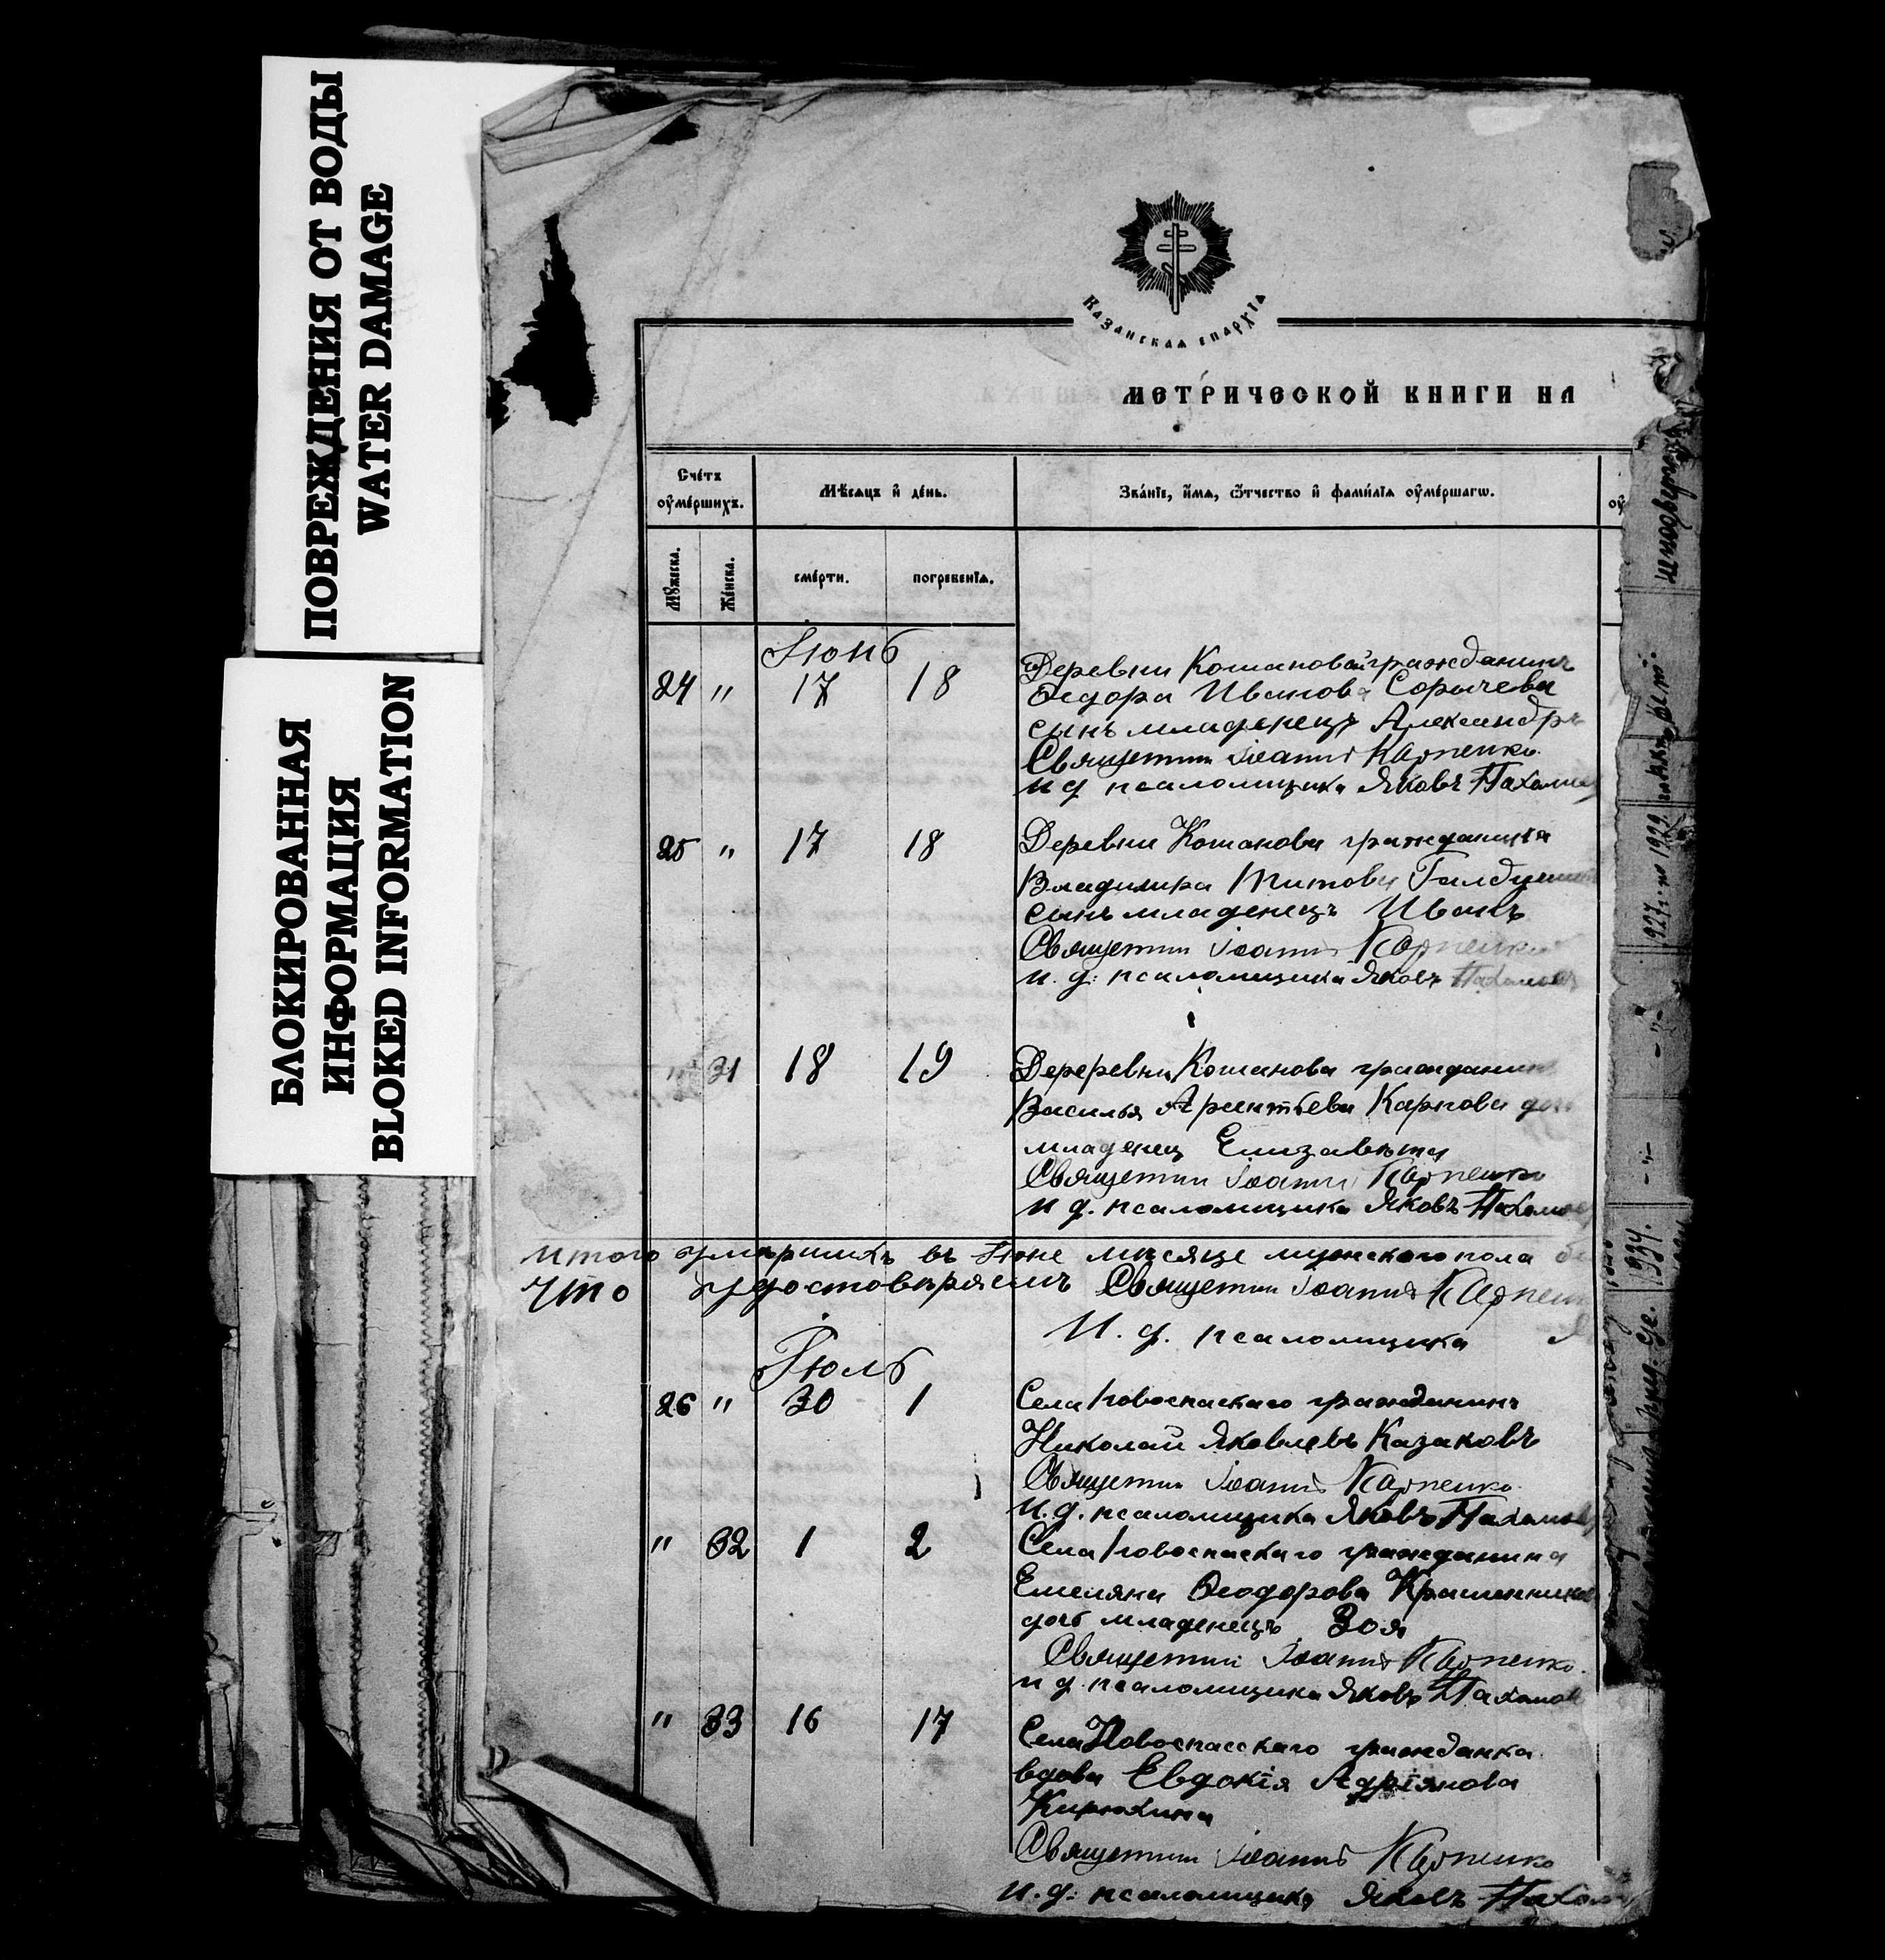 ПОВРЕЖДЕНИЯ ОТ ВОДЫ
WATER DAMAGE
БЛОКИРОВАННАЯ
ИНФОРМАЦИЯ
BLOKED INFORMATION
КАЗАНСКАЯ ЕПАРХІЯ
МЕТРИЧЕСКОЙ КНИГИ НА
Счетъ
оумершихъ.
Мѣсяцъ и день.
Званіе, имя, отчество и фамилія оумершагѡ.
Мужеска.
Женска.
смерти.
погребенія.
Іюнь
24 " 17 18 Деревни Кошановой гражданинъ
Ѳедора Иванова Сорычева
сынъ младенецъ Александръ
Священник Іоаннъ Карпенко
и д псаломщика Яковъ Пахомов
25 " 17 18 Деревни Кошанова гражданина
Владимира Титова
сынъ младенецъ Иванъ
Священник Іоаннъ Карпенко
и. д. псаломщика Яковъ Пахомов
" 31 18 19 Дереревни Кошанова гражданин
Василья Арентьева Карпова дочь
младенец Елизавета
Священник Іоаннъ Карпенко
и д. псаломщика Яковъ Пахомов
Итого умершихъ въ Іюне месяце мужскаго пола
Что удостоверяемъ Священник Іоаннъ Карпенко
И. д. псаломщика
Іюль
26 " 30 1 Села Новоспаскаго гражданинъ
Николай Яковлевъ Казаковъ
Священник Іоаннъ Карпенко
И. д. псаломщика Яковъ Пахомов
" 32 1 2 Села Новоспаскаго гражданина
Емеляна Ѳеодорова Крашенникова
дочь младенецъ Зоя
Священник Іоаннъ Карпенко
и д. псаломщика Яковъ Пахомов
" 33 16 17 Села Новоспасскаго гражданка
вдова Евдокія Адріянова
Кирюхина
Священник Іоаннъ Карпенко
и. д. псаломщика Яковъ Пахомов